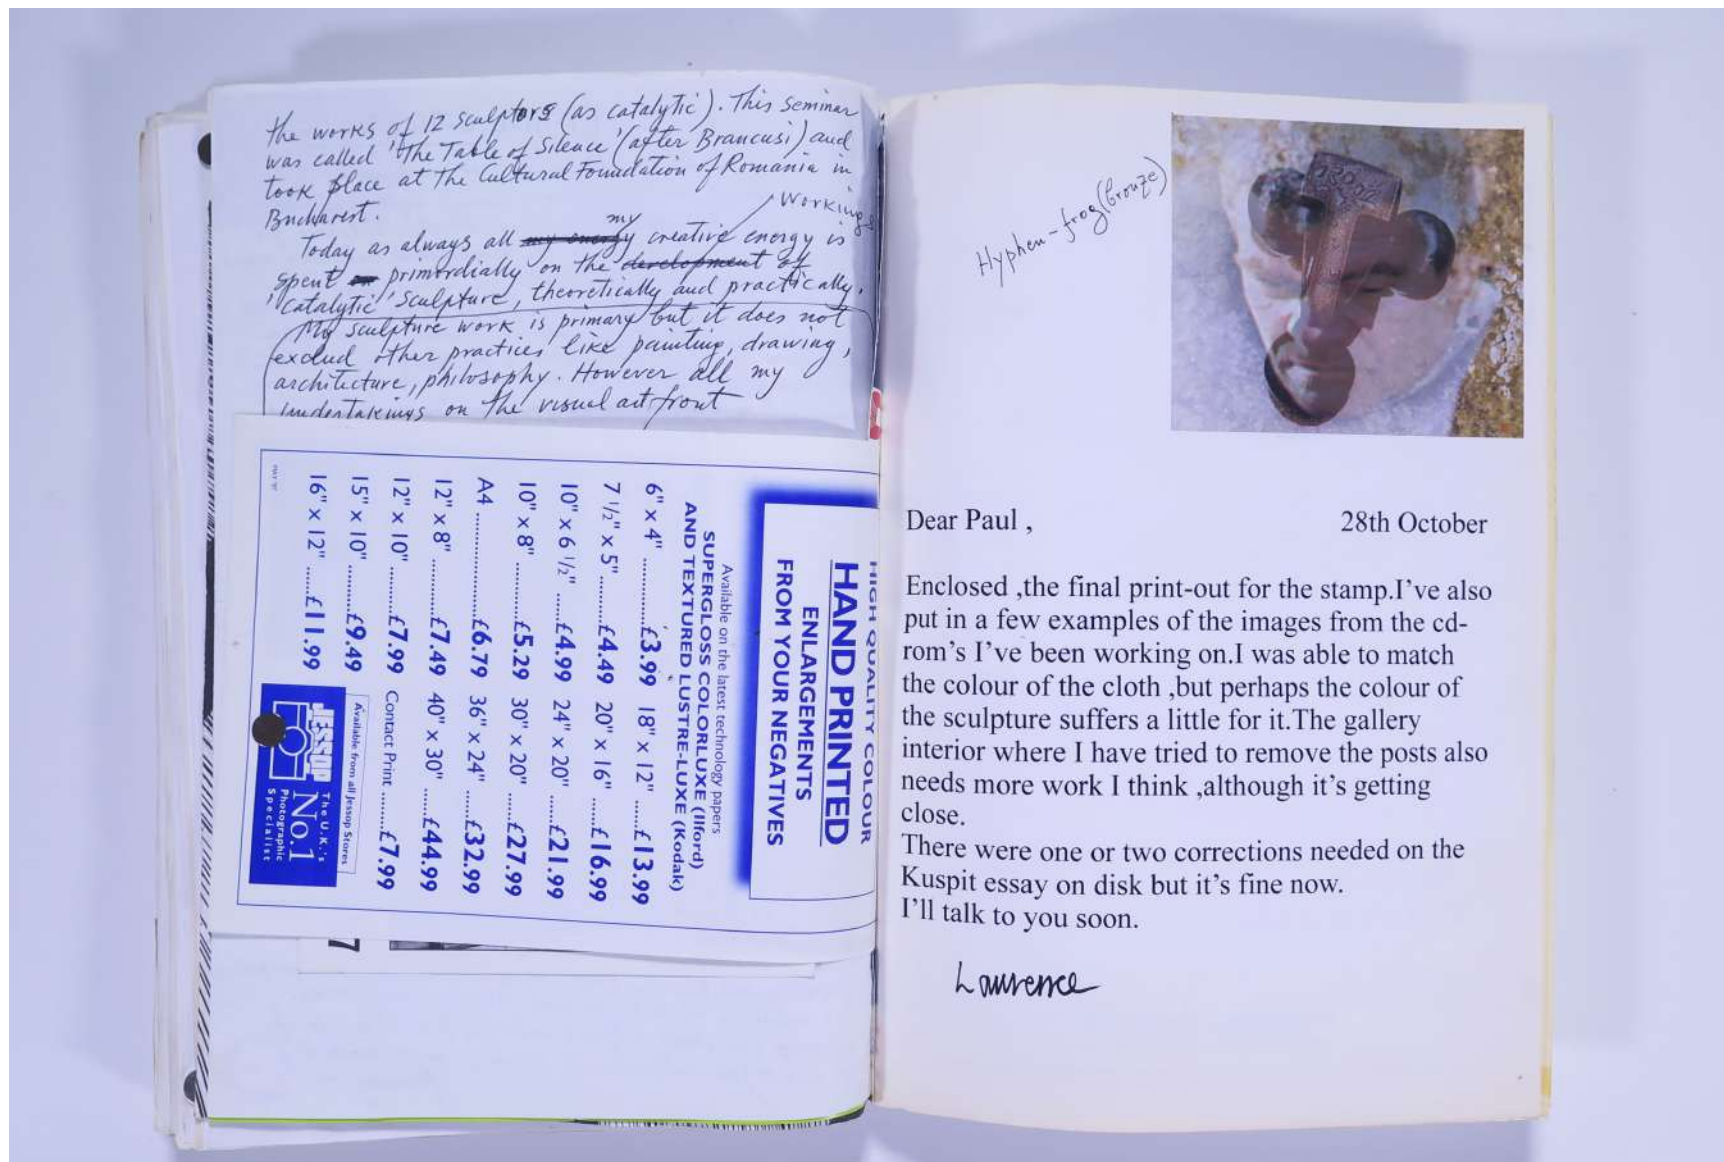 the works of 12 sculptors (as catalytic). This seminar
was called 'The Table of Silence' (after Brancusi) and
took place at the Cultural Foundation of Romania in
Bucharest.
Workings
my
Today as always all my energy creative energy is
spent primordially on the development of
'Catalytic' Sculpture, theoretically and practically.
My sculpture work is primary but it does not
exclud other practices like painting, drawing,
architecture, philosophy. However all my
undertakings on the visual art front
HIGH QUALITY COLOUR
HAND PRINTED
ENLARGEMENTS
FROM YOUR NEGATIVES
Available on the latest technology papers
SUPERGLOSS COLORLUXE (Ilford)
AND TEXTURED LUSTRE-LUXE (Kodak)
6" x 4" ..............£3.99 18" x 12" ......£13.99
7 1/2" x 5" ..........£4.49 20" x 16" ......£16.99
10" x 6 1/2" ......£4.99 24" x 20" ......£21.99
10" x 8" ............£5.29 30" x 20" ......£27.99
A4 ....................£6.79 36" x 24" ......£32.99
12" x 8" ............£7.49 40" x 30" ......£44.99
12" x 10" ..........£7.99 Contact Print ......£7.99
15" x 10" ..........£9.49
16" x 12" ......£11.99
Available from all Jessop Stores
JESSOP
The U.K.'s
No.1
Photographic
Specialist
MAY '97
7
Hyphen-frog (bronze)
Dear Paul , 28th October
Enclosed ,the final print-out for the stamp.I've also
put in a few examples of the images from the cd-
rom's I've been working on.I was able to match
the colour of the cloth ,but perhaps the colour of
the sculpture suffers a little for it.The gallery
interior where I have tried to remove the posts also
needs more work I think ,although it's getting
close.
There were one or two corrections needed on the
Kuspit essay on disk but it's fine now.
I'll talk to you soon.
Lawrence